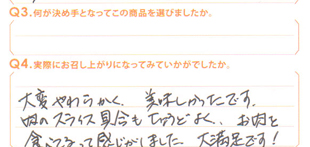 Q3.何が決め手となってこの商品を選びましたか。
Q4.実際にお召し上がりになってみていかがでしたか。
大変やわらかく、美味しかったです。
肉のスライス具合もちょうどよく、お肉を
食べてるって感じがしました。大満足です!